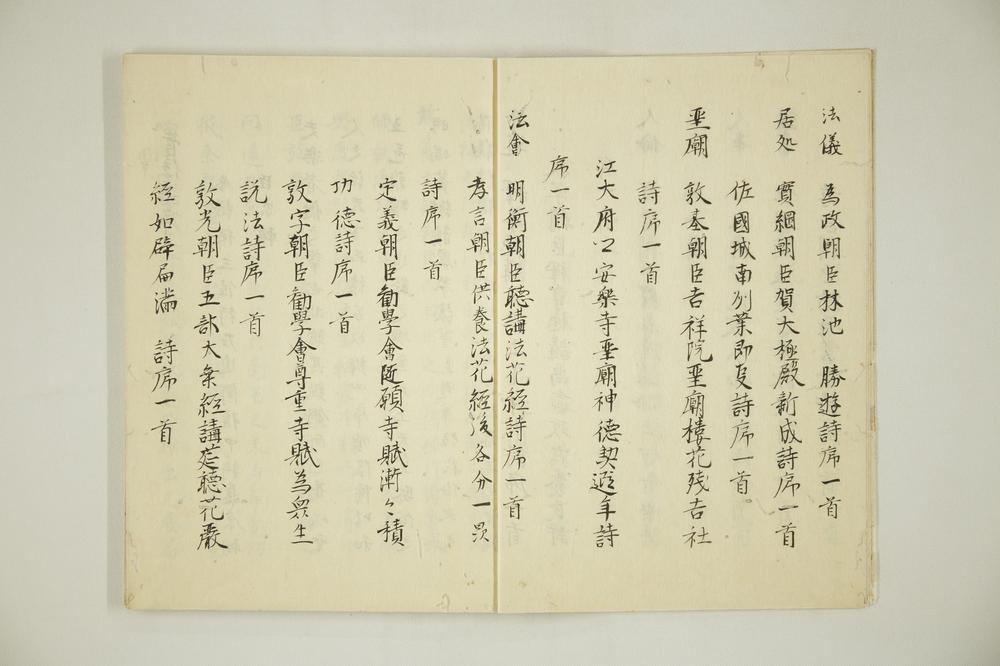 法儀 為政朝臣林池 勝遊詩序一首
居処 實綱朝臣賀大極殿新成詩序一首
佐國城南別業即事詩序一首
聖廟 敦基朝臣吉祥院聖廟樓花残古社
詩序一首
江大府卿安樂寺聖廟神德契遐年詩
序一首
法會 明衡朝臣聴講法花經詩序一首
孝言朝臣供養法花經後各分一
詩序一首
定義朝臣勧學會随願寺賦漸〻積
功德詩序一首
敦宗朝臣勧學會尊重寺賦為衆生
説法詩序一首
敦光朝臣五部大乗經講莚聴花嚴
經如 扁滿 詩序一首